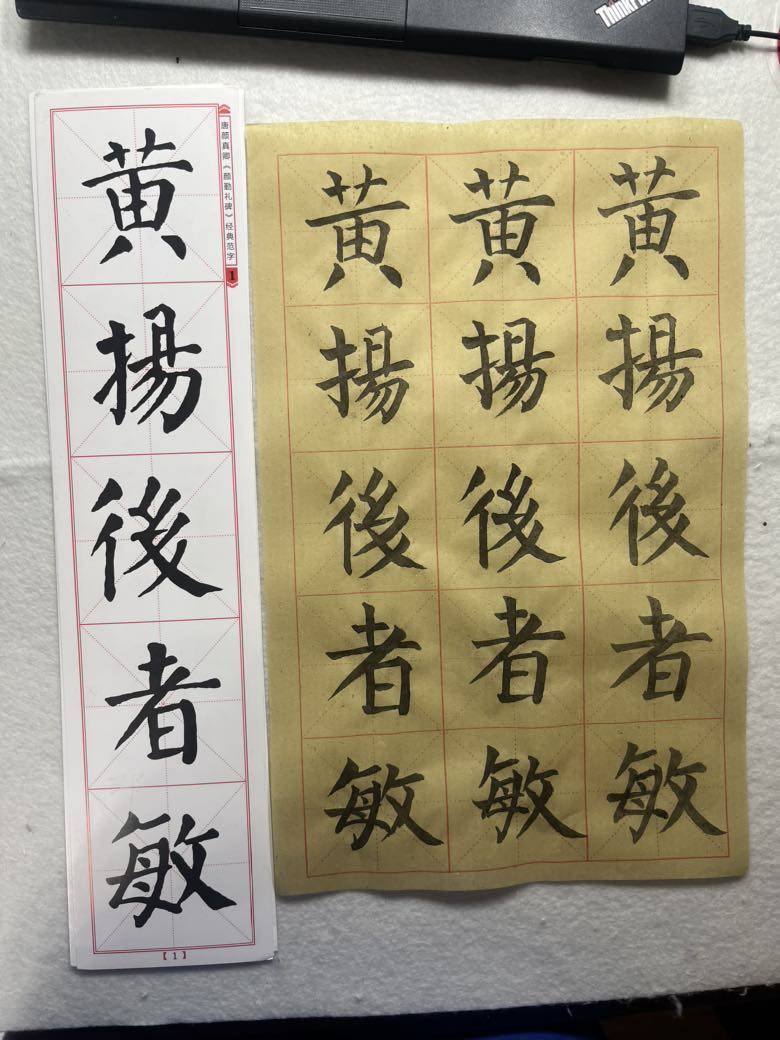 ThinkPad
唐颜真卿《颜勤礼碑》经典范字
1
黄
揚
後
者
敏
【1】
黄 黄 黄
揚 揚 揚
後 後 後
者 者 者
敏 敏 敏